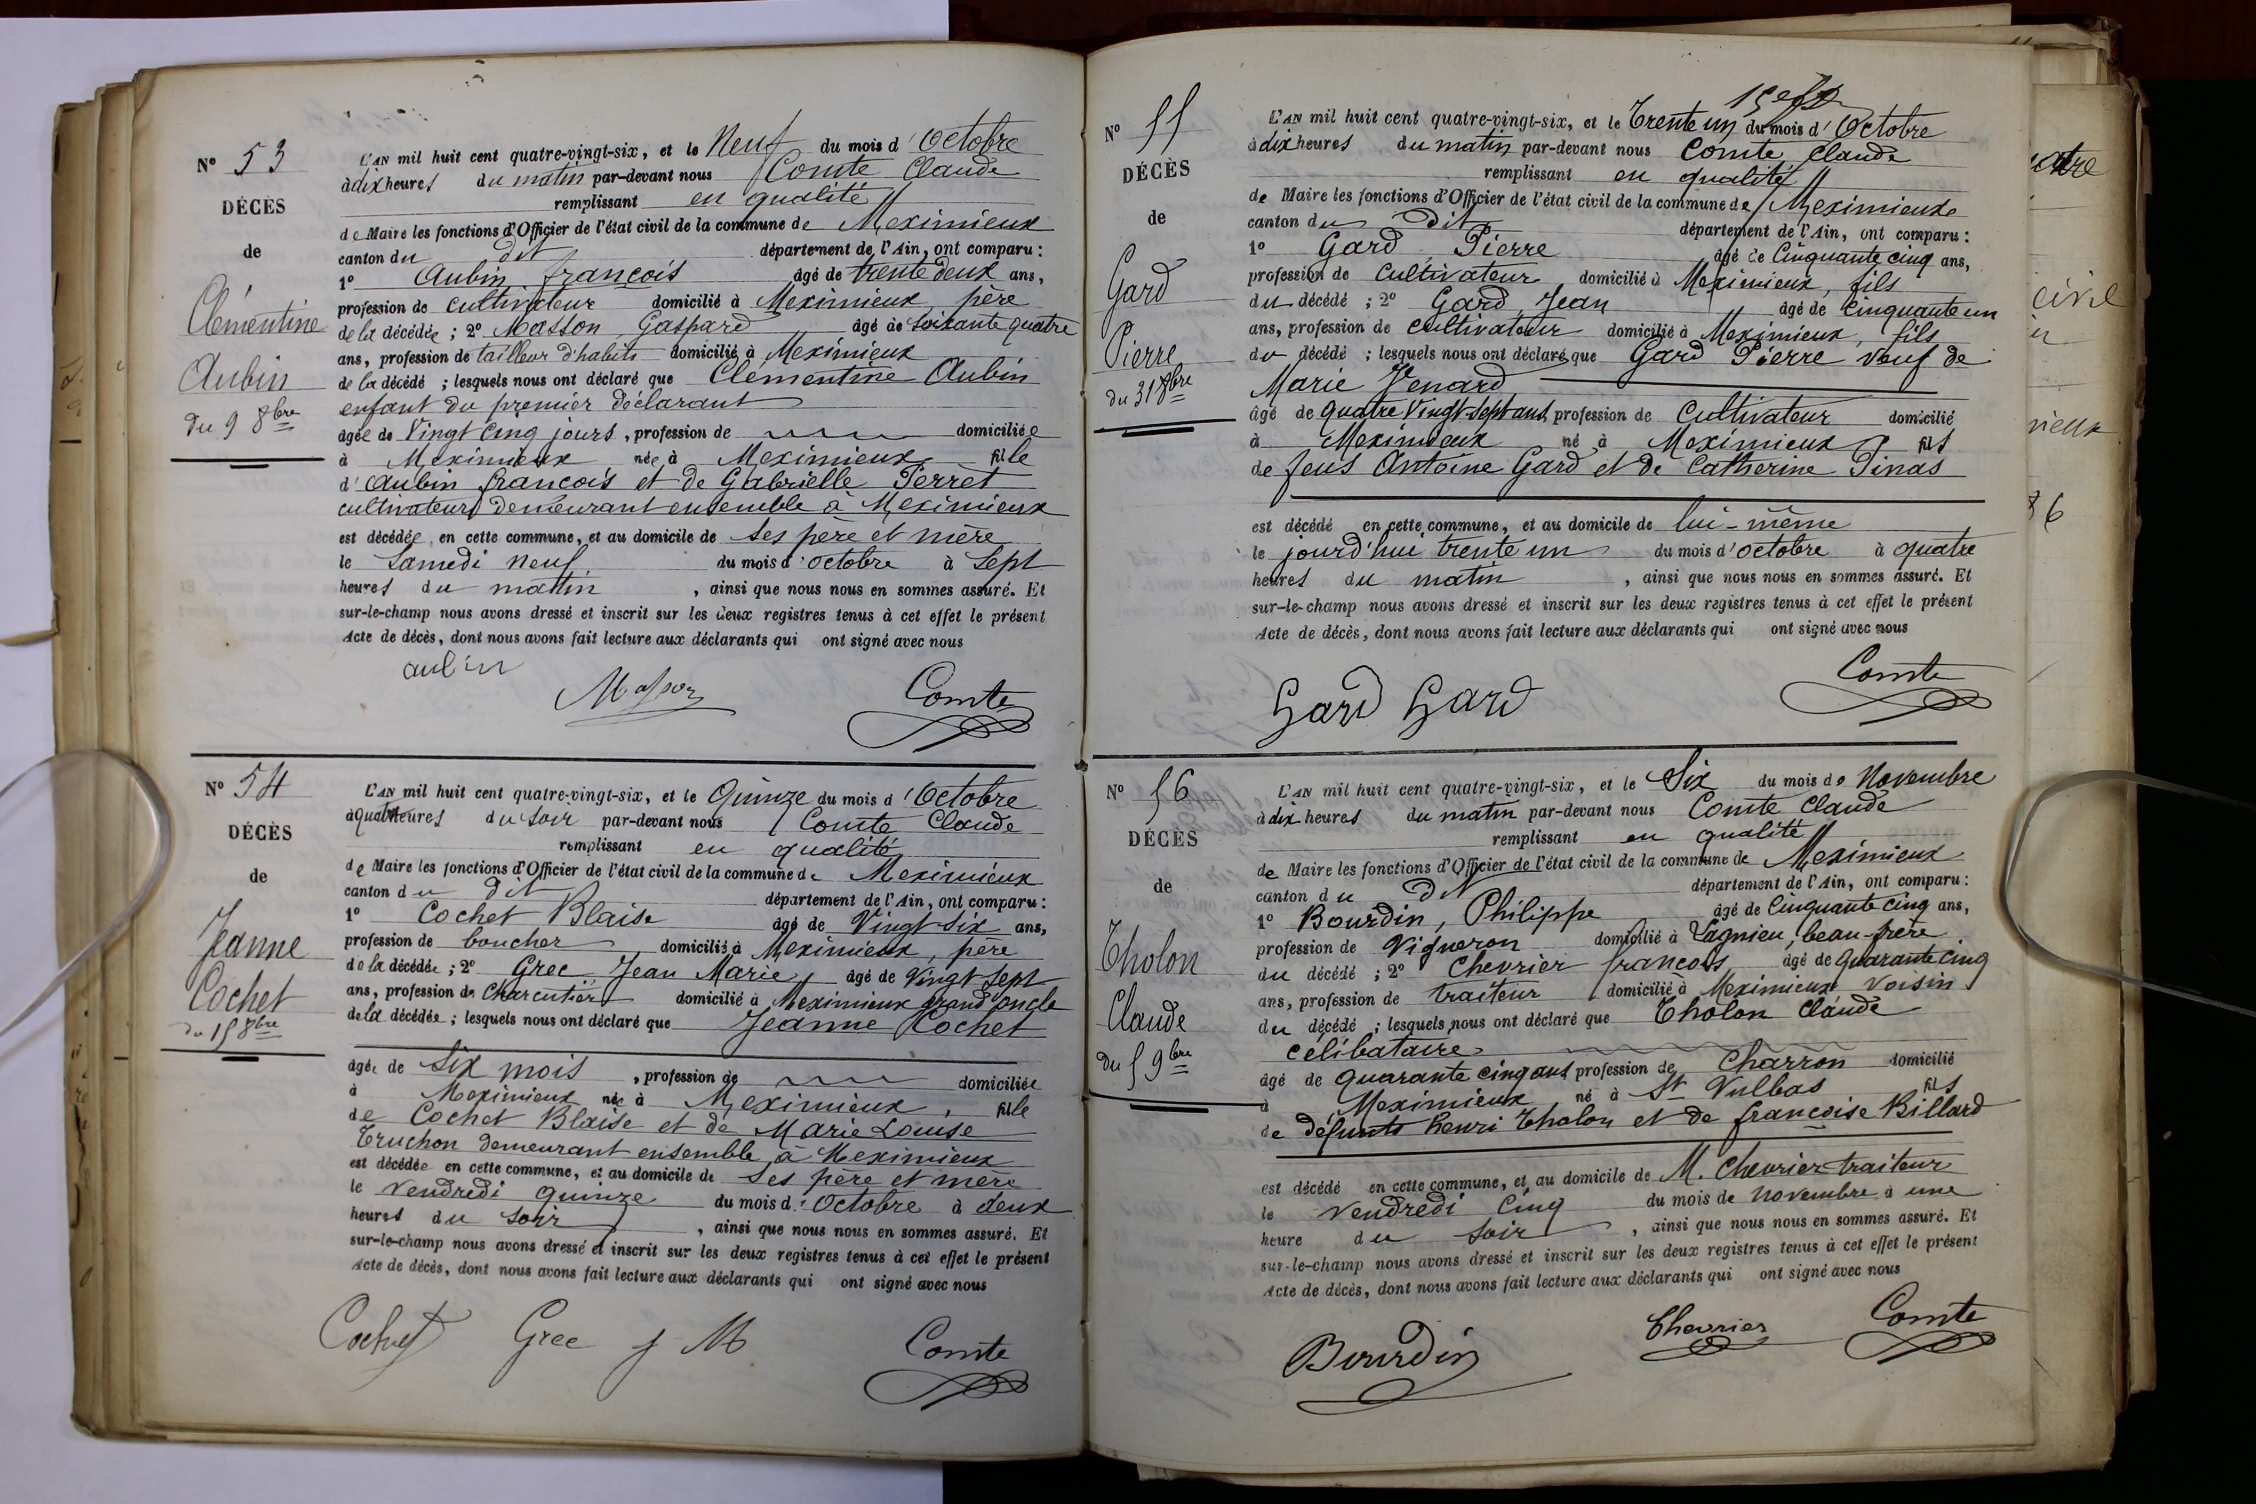 N° 53
DÉCÈS
de
Clémentine
Aubin
du 9 8bre
L'AN mil huit cent quatre-vingt-six, et le Neuf du mois d'Octobre
à dix heures du matin par-devant nous Comte Claude
remplissant en qualité
de Maire les fonctions d'Officier de l'état civil de la commune de Meximieux
canton du dit département de l'Ain, ont comparu :
1° Aubin françois âgé de trente deux ans,
profession de cultivateur domicilié à Meximieux, père
de la décédée ; 2° Masson Gaspard âgé de soixante quatre
ans, profession de tailleur d'habits domicilié à Meximieux
de la décédé ; lesquels nous ont déclaré que Clémentine Aubin
enfant du premier déclarant
âgée de Vingt cinq jours, profession de domiciliée
à Meximieux née à Meximieux fille
d'Aubin françois et de Gabrielle Perret
cultivateurs demeurant ensemble à Meximieux
est décédée en cette commune, et au domicile de ses père et mère
le Samedi neuf du mois d'octobre à Sept
heures du matin, ainsi que nous nous en sommes assuré. Et
sur-le-champ nous avons dressé et inscrit sur les deux registres tenus à cet effet le présent
Acte de décès, dont nous avons fait lecture aux déclarants qui ont signé avec nous
aubin
Masson
Comte
N° 54
DÉCÈS
de
Jeanne
Cochet
du 15 8bre
L'AN mil huit cent quatre-vingt-six, et le Quinze du mois d'Octobre
à quatre heures du soir par-devant nous Comte Claude
remplissant en qualité
de Maire les fonctions d'Officier de l'état civil de la commune de Meximieux
canton du dit département de l'Ain, ont comparu :
1° Cochet Blaise âgé de Vingt six ans,
profession de boucher domicilié à Meximieux, père
de la décédée ; 2° Grec Jean Marie âgé de Vingt sept
ans, profession de Charcutier domicilié à Meximieux grand oncle
de la décédée ; lesquels nous ont déclaré que Jeanne Cochet
âgée de Six mois, profession de domiciliée
à Meximieux née à Meximieux, fille
de Cochet Blaise et de Marie Louise
Truchon demeurant ensemble à Meximieux
est décédée en cette commune, et au domicile de ses père et mère
le Vendredi quinze du mois d'Octobre à deux
heures du soir, ainsi que nous nous en sommes assuré. Et
sur-le-champ nous avons dressé et inscrit sur les deux registres tenus à cet effet le présent
Acte de décès, dont nous avons fait lecture aux déclarants qui ont signé avec nous
Cochet Grec j M
Comte
N° 55
DÉCÈS
de
Gard
Pierre
du 31 8bre
L'AN mil huit cent quatre-vingt-six, et le Trente un du mois d'Octobre
à dix heures du matin par-devant nous Comte Claude
remplissant en qualité
de Maire les fonctions d'Officier de l'état civil de la commune de Meximieux
canton du Dit département de l'Ain, ont comparu :
1° Gard Pierre âgé de Cinquante cinq ans,
profession de cultivateur domicilié à Meximieux, fils
du décédé ; 2° Gard Jean âgé de Cinquante un
ans, profession de cultivateur domicilié à Meximieux, fils
du décédé ; lesquels nous ont déclaré que Gard Pierre veuf de
Marie Venard
âgé de quatre Vingt sept ans, profession de Cultivateur domicilié
à Meximieux né à Meximieux fils
de feus Antoine Gard et de Catherine Pinas
est décédé en cette commune, et au domicile de lui-même
le jourd'hui trente un du mois d'octobre à quatre
heures du matin, ainsi que nous nous en sommes assuré. Et
sur-le-champ nous avons dressé et inscrit sur les deux registres tenus à cet effet le présent
Acte de décès, dont nous avons fait lecture aux déclarants qui ont signé avec nous
Gard Gard
Comte
N° 56
DÉCÈS
de
Tholon
Claude
du 5 9bre
L'AN mil huit cent quatre-vingt-six, et le Six du mois de Novembre
à dix heures du matin par-devant nous Comte Claude
remplissant en qualité
de Maire les fonctions d'Officier de l'état civil de la commune de Meximieux
canton du dit département de l'Ain, ont comparu :
1° Bourdin, Philippe âgé de Cinquante cinq ans,
profession de Vigneron domicilié à Lagnieu, beau-frère
du décédé ; 2° Chevrier françois âgé de quarante cinq
ans, profession de traiteur domicilié à Meximieux voisin
du décédé ; lesquels nous ont déclaré que Tholon Claude
célibataire
âgé de quarante cinq ans, profession de Charron domicilié
à Meximieux né à St Vulbas fils
de défunts henri Tholon et de françoise Billard
est décédé en cette commune, et au domicile de M. Chevrier traiteur
le vendredi Cinq du mois de novembre à une
heure du soir, ainsi que nous nous en sommes assuré. Et
sur-le-champ nous avons dressé et inscrit sur les deux registres tenus à cet effet le présent
Acte de décès, dont nous avons fait lecture aux déclarants qui ont signé avec nous
Bourdin
Chevrier
Comte
civil
86